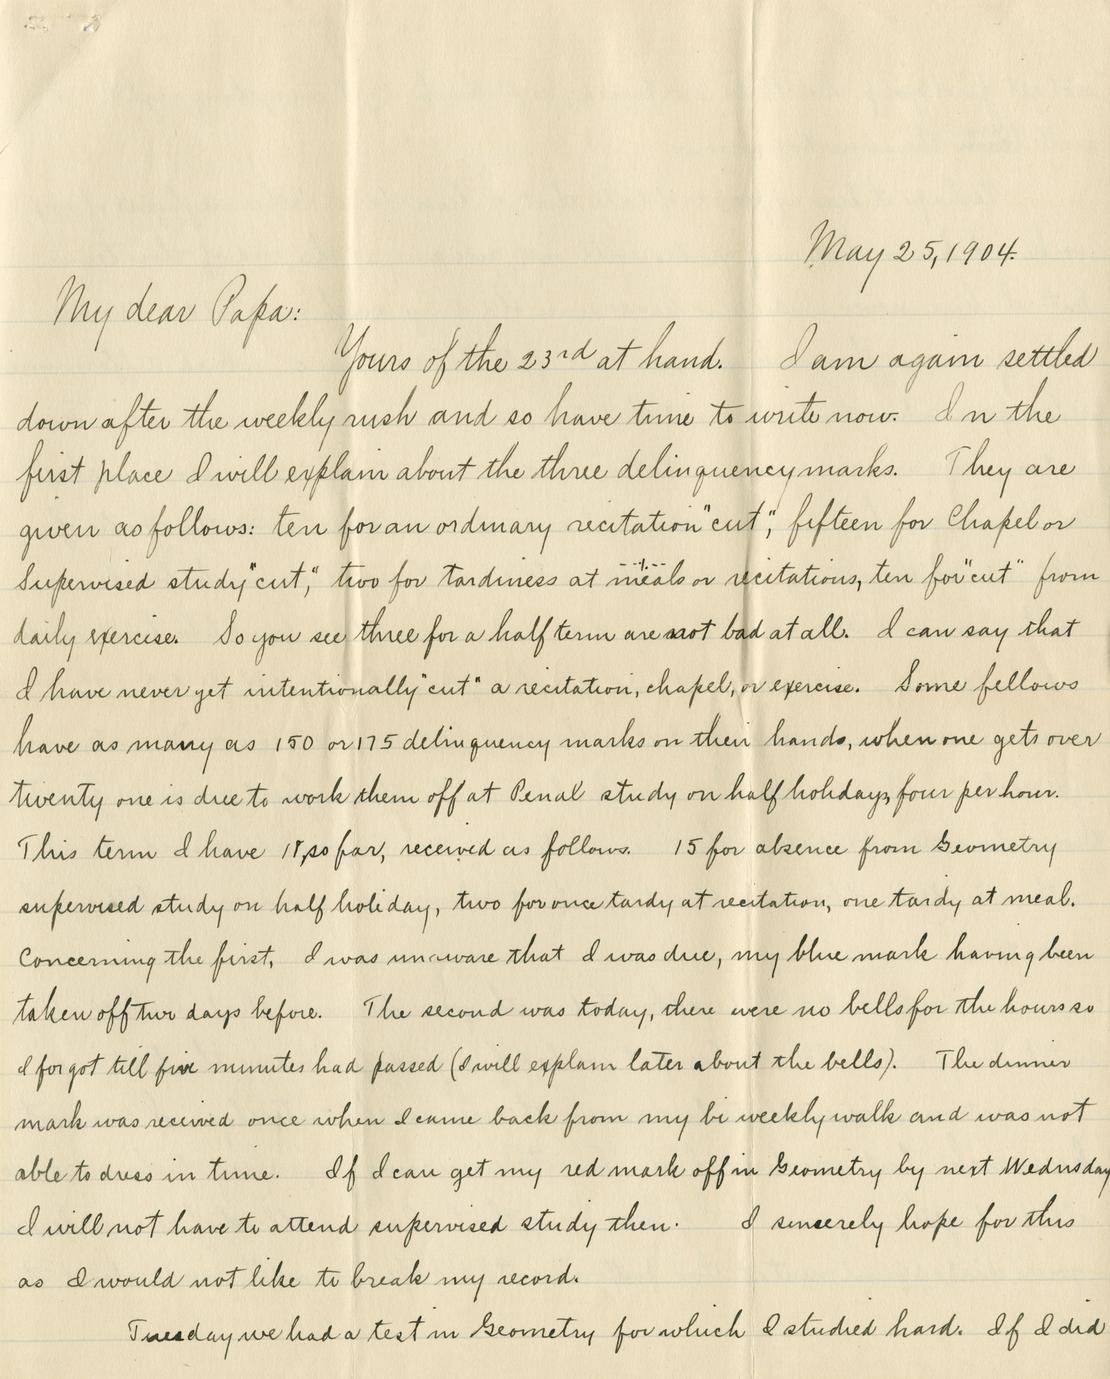 May 25, 1904.
My dear Papa:
Yours of the 23rd at hand. I am again settled
down after the weekly rush and so have time to write now. In the
first place I will explain about the three delinquency marks. They are
given as follows: ten for an ordinary recitation "cut", fifteen for Chapel or
Supervised study "cut," two for tardiness at meals or recitations, ten for "cut" from
daily exercise. So you see three for a half term are not bad at all. I can say that
I have never yet intentionally "cut" a recitation, chapel, or exercise. Some fellows
have as many as 150 or 175 delinquency marks on their hands, when one gets over
twenty one is due to work them off at Penal study on half holidays, four per hour.
This term I have 18, so far, received as follows. 15 for absence from Geometry
supervised study on half holiday, two for once tardy at recitation, one tardy at meal.
Concerning the first, I was unaware that I was due, my blue mark having been
taken off two days before. The second was today, there were no bells for the hours so
I forgot till five minutes had passed (I will explain later about the bells). The dinner
mark was received once when I came back from my bi weekly walk and was not
able to dress in time. If I can get my red mark off in Geometry by next Wednsday
I will not have to attend supervised study then. I sincerely hope for this
as I would not like to break my record.
Tuesday we had a test in Geometry for which I studied hard. If I did